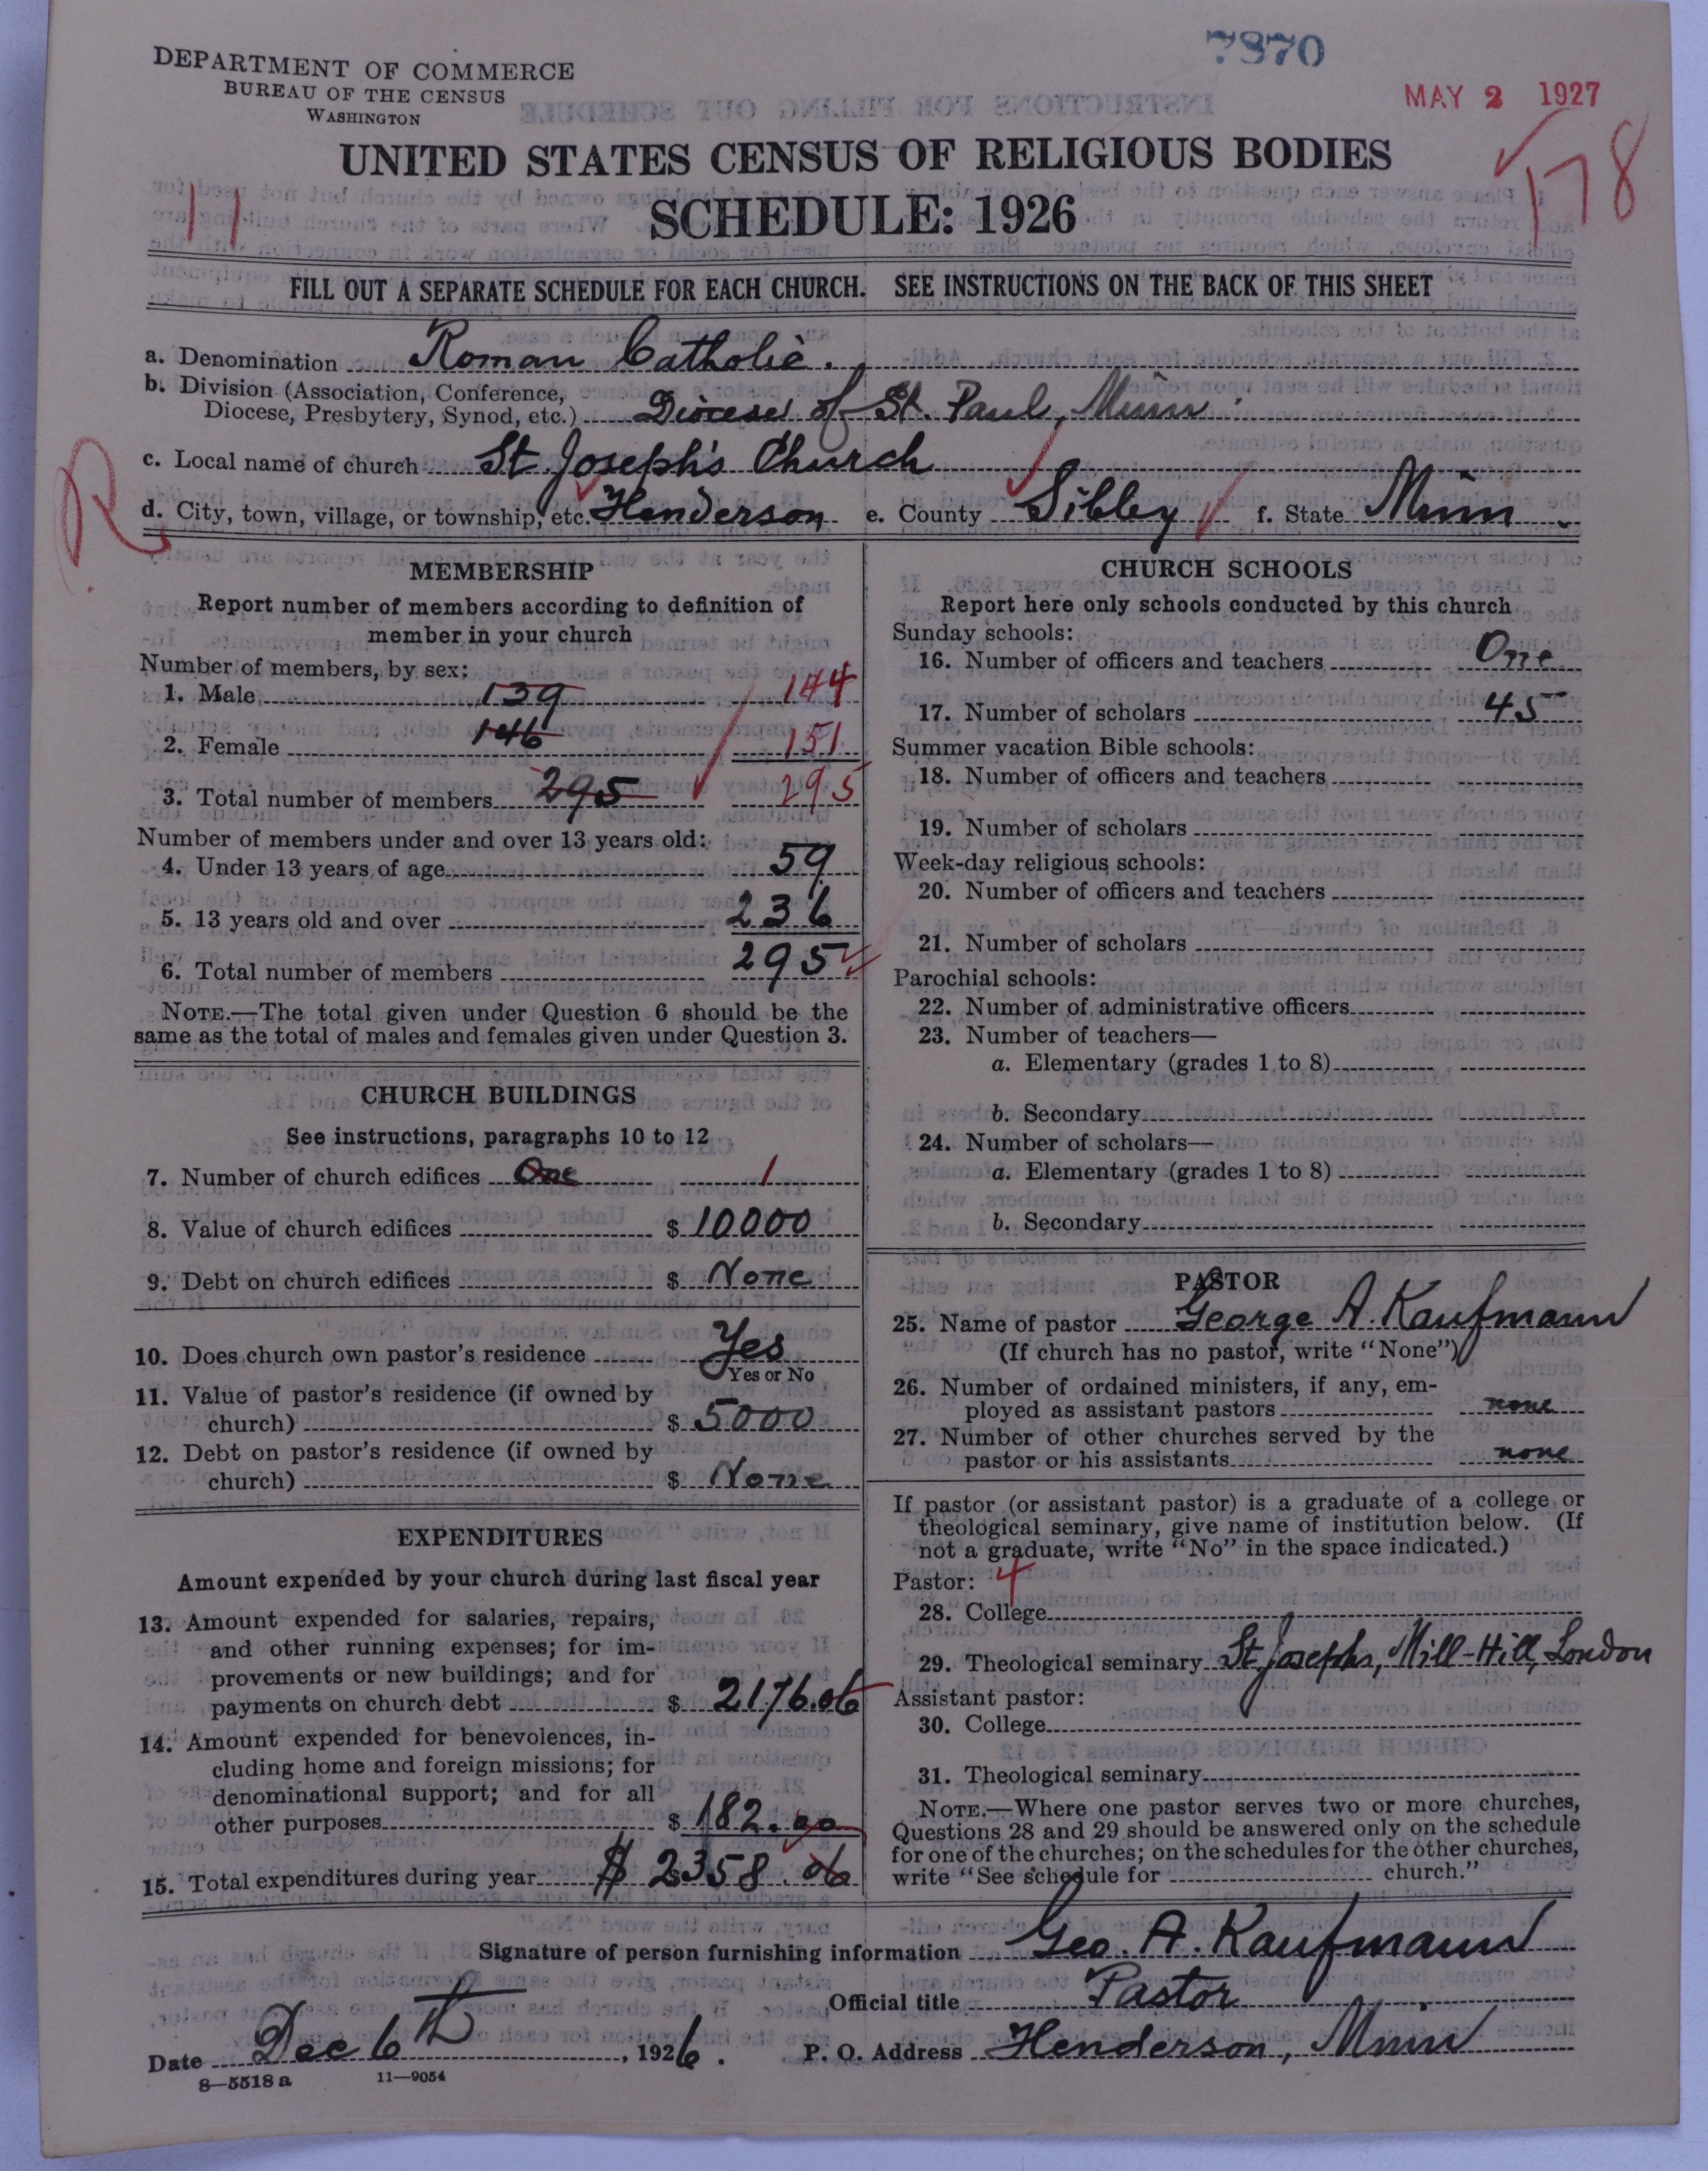 7870
DEPARTMENT OF COMMERCE
BUREAU OF THE CENSUS
WASHINGTON
MAY 2 1927
178
UNITED STATES CENSUS OF RELIGIOUS BODIES
11
SCHEDULE: 1926
FILL OUT A SEPARATE SCHEDULE FOR EACH CHURCH. SEE INSTRUCTIONS ON THE BACK OF THIS SHEET
a. Denomination Roman Catholic.
b. Division (Association, Conference,
Diocese, Presbytery, Synod, etc.) Diocese of St. Paul, Minn.
c. Local name of church St Joseph's Church
R
d. City, town, village, or township, etc. Henderson e. County Sibley f. State Minn.
MEMBERSHIP
Report number of members according to definition of
member in your church
Number of members, by sex:
1. Male 139 144
2. Female 146 151
3. Total number of members 295 295
Number of members under and over 13 years old:
4. Under 13 years of age 59
5. 13 years old and over 236
6. Total number of members 295
NOTE.—The total given under Question 6 should be the
same as the total of males and females given under Question 3.
CHURCH BUILDINGS
See instructions, paragraphs 10 to 12
7. Number of church edifices One 1
8. Value of church edifices $ 10000
9. Debt on church edifices $ None
10. Does church own pastor's residence Yes
Yes or No
11. Value of pastor's residence (if owned by
church) $ 5000
12. Debt on pastor's residence (if owned by
church) $ None
EXPENDITURES
Amount expended by your church during last fiscal year
13. Amount expended for salaries, repairs,
and other running expenses; for im-
provements or new buildings; and for
payments on church debt $ 2176.06
14. Amount expended for benevolences, in-
cluding home and foreign missions; for
denominational support; and for all
other purposes $ 182.00
15. Total expenditures during year $ 2358.06
CHURCH SCHOOLS
Report here only schools conducted by this church
Sunday schools:
16. Number of officers and teachers One
17. Number of scholars 45
Summer vacation Bible schools:
18. Number of officers and teachers
19. Number of scholars
Week-day religious schools:
20. Number of officers and teachers
21. Number of scholars
Parochial schools:
22. Number of administrative officers
23. Number of teachers—
a. Elementary (grades 1 to 8)
b. Secondary
24. Number of scholars—
a. Elementary (grades 1 to 8)
b. Secondary
PASTOR
25. Name of pastor George A. Kaufmann
(If church has no pastor, write "None")
26. Number of ordained ministers, if any, em-
ployed as assistant pastors none
27. Number of other churches served by the
pastor or his assistants none
If pastor (or assistant pastor) is a graduate of a college or
theological seminary, give name of institution below. (If
not a graduate, write "No" in the space indicated.)
Pastor: 4
28. College
29. Theological seminary St Josephs, Mill-Hill, London
Assistant pastor:
30. College
31. Theological seminary
NOTE.—Where one pastor serves two or more churches,
Questions 28 and 29 should be answered only on the schedule
for one of the churches; on the schedules for the other churches,
write "See schedule for church."
Signature of person furnishing information Geo. A. Kaufmann
Official title Pastor
Date Dec 6th, 1926. P. O. Address Henderson, Minn
8—5518 a 11—9054